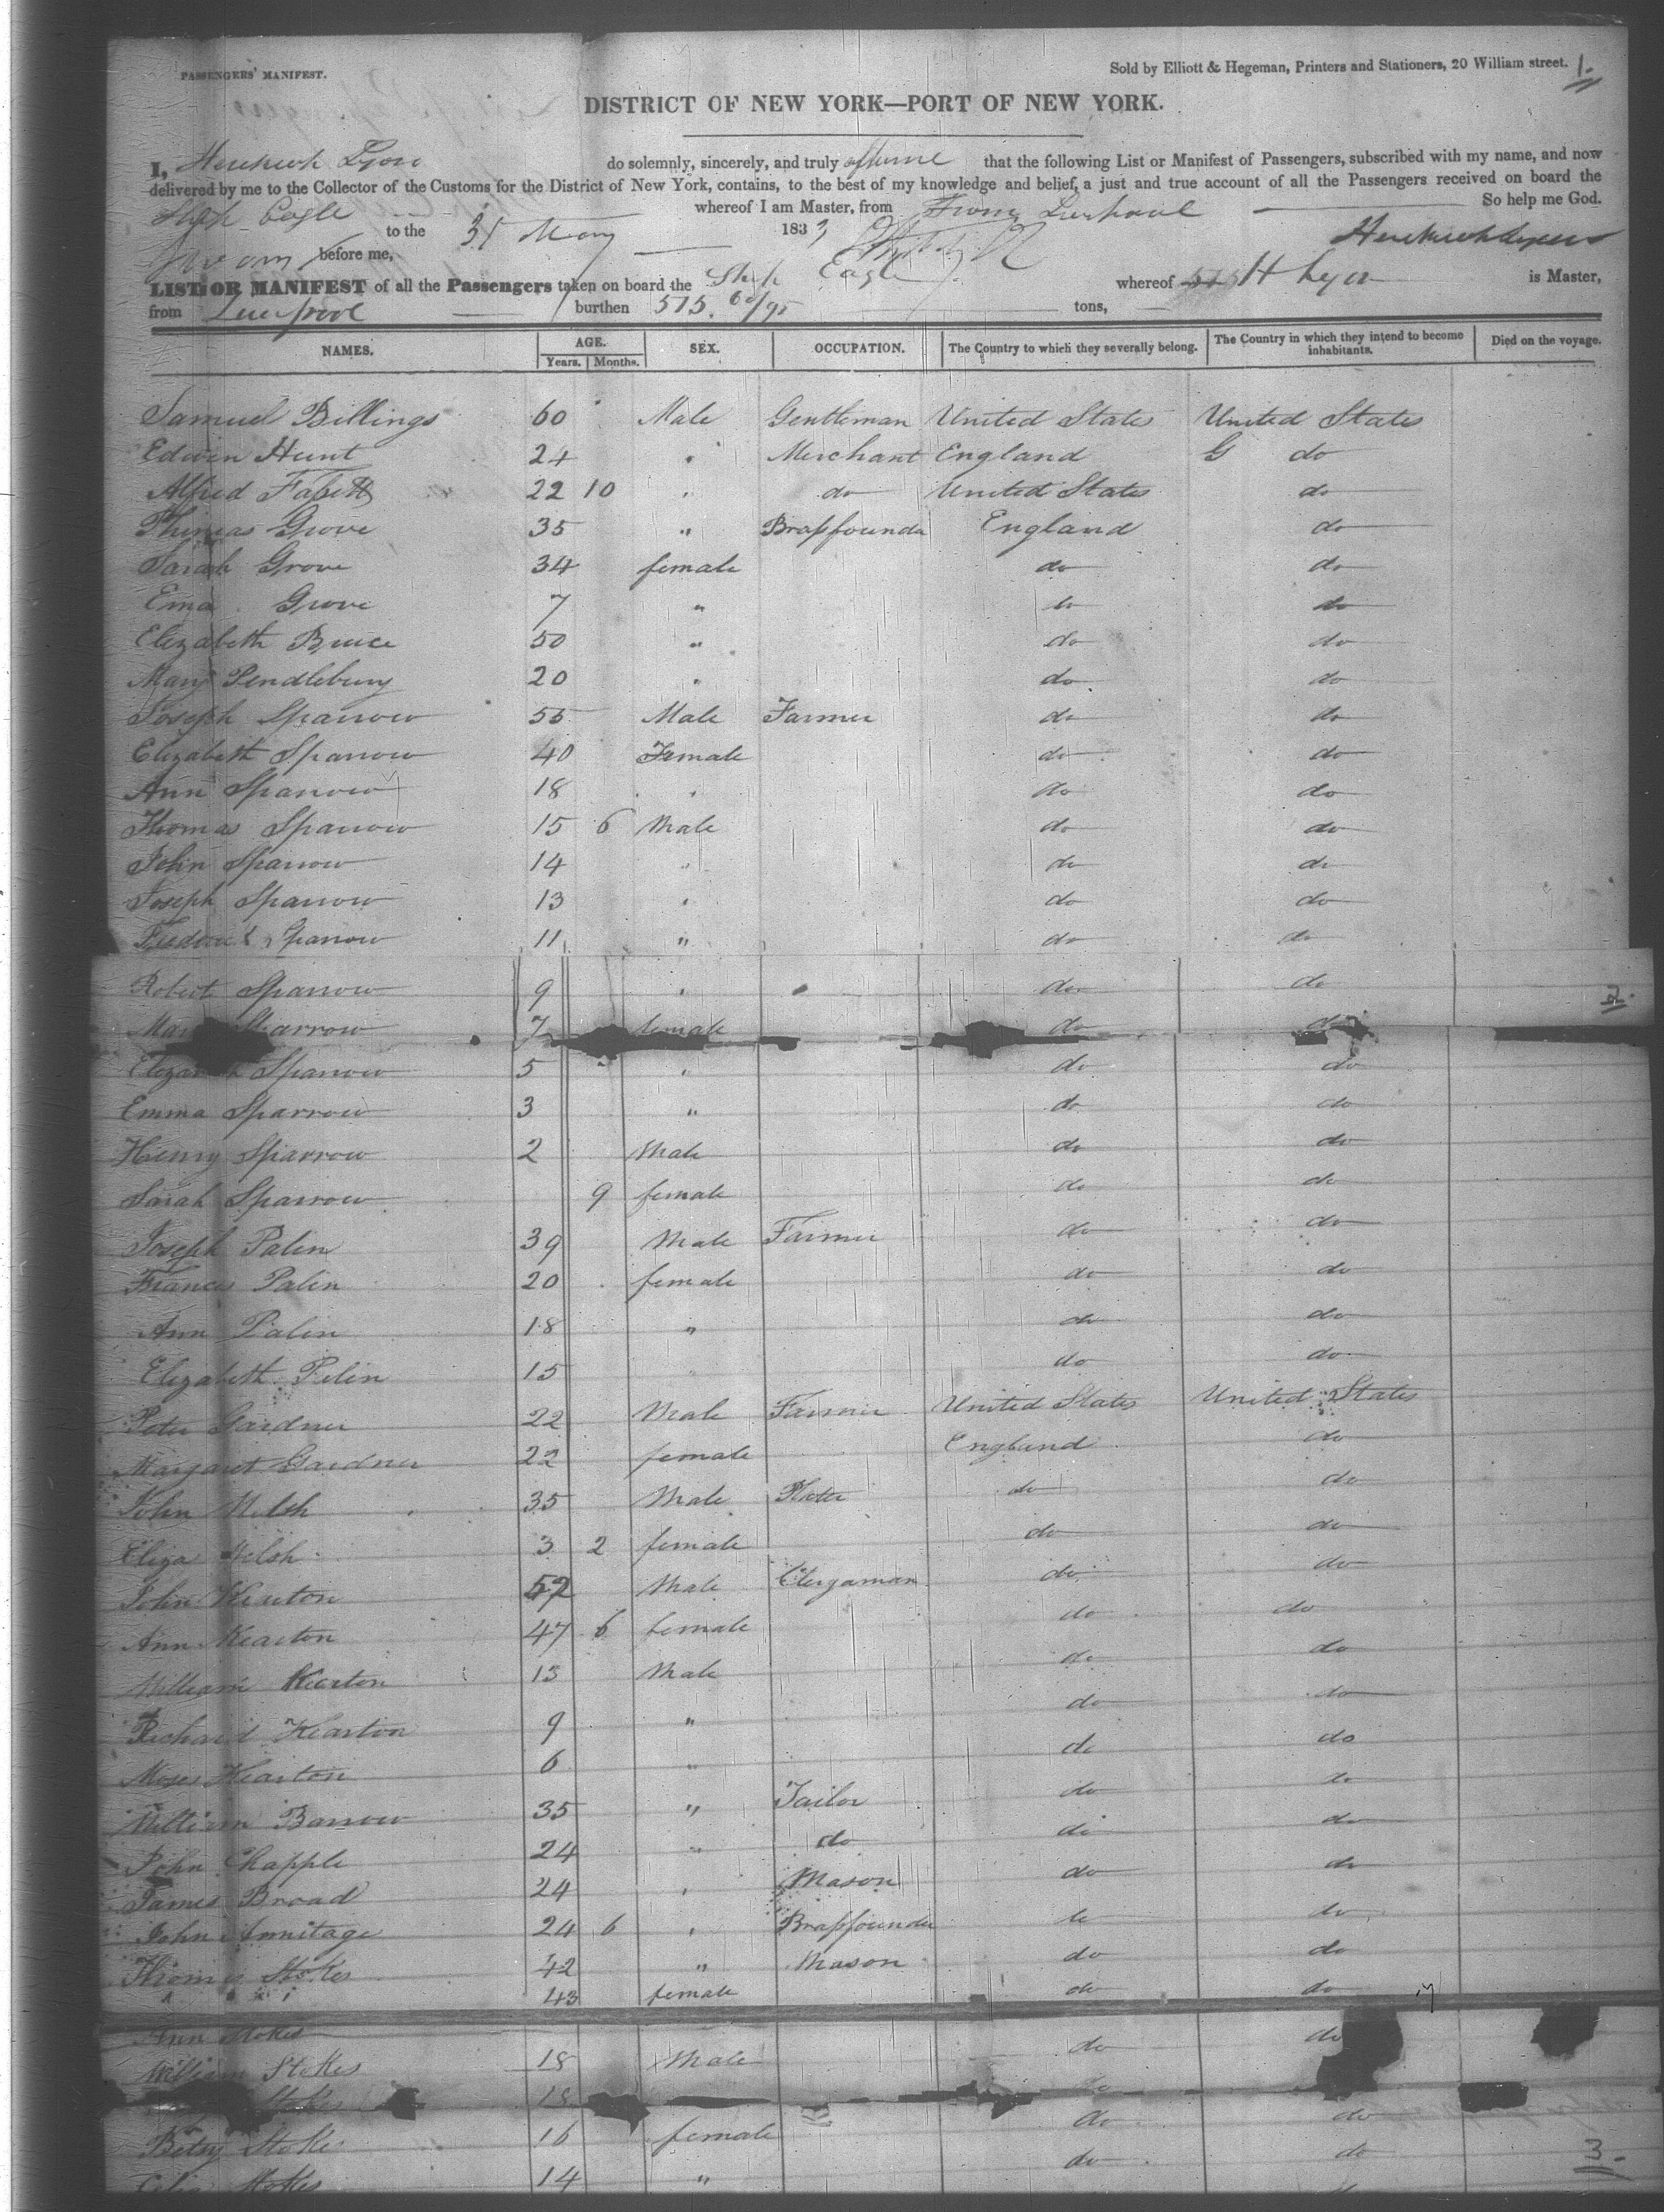 PASSENGERS' MANIFEST.
Sold by Elliott & Hegeman, Printers and Stationers, 20 William street. 1.
DISTRICT OF NEW YORK—PORT OF NEW YORK.
I, Lyon do solemnly, sincerely, and truly that the following List or Manifest of Passengers, subscribed with my name, and now
delivered by me to the Collector of the Customs for the District of New York, contains, to the best of my knowledge and belief, a just and true account of all the Passengers received on board the
Ship Eagle whereof I am Master, from From Liverpool So help me God.
to the 31 May 183
before me,
LIST OR MANIFEST of all the Passengers taken on board the Ship Eagle whereof H Lyon is Master,
from Liverpool burthen 515. 60/95 tons,
NAMES. AGE. Years. Months. SEX. OCCUPATION. The Country to which they severally belong. The Country in which they intend to become inhabitants. Died on the voyage.
Samuel Billings 60 Male Gentleman United States United States
Edwin Hunt 24 " Merchant England G do
Alfred 22 10 " do United States do
Thineas Grove 35 " Brassfounder England do
Sarah Grove 34 female do do
Ema Grove 7 " do do
Elizabeth Bruce 50 " do do
Mary Pendlebury 20 " do do
Joseph Sparrow 55 Male Farmer do do
Elizabeth Sparrow 40 Female do do
Ann Sparrow 18 " do do
Thomas Sparrow 15 6 Male do do
John Sparrow 14 " do do
Joseph Sparrow 13 " do do
Frederick Sparrow 11 " do do
Robert Sparrow 9 " do do
2.
Mary Sparrow 7 female do do
Elizabeth Sparrow 5 " do do
Emma Sparrow 3 " do do
Henry Sparrow 2 Male do do
Sarah Sparrow 9 female do do
Joseph Palin 39 Male Farmer do do
Frances Palin 20 female do do
Ann Palin 18 " do do
Elizabeth Palin 15 " do do
Peter Gardner 22 Male Farmer United States United States
Margaret Gardner 22 female England do
John Welsh 35 Male do do
Eliza Welsh 3 2 female do do
John Kearton 52 Male Clergaman do do
Ann Kearton 47 6 female do do
William Kearton 15 Male do do
Richard Kearton 9 " do do
Moses Kearton 6 " do do
William Barrow 35 " Tailor do do
John Chapple 24 " do do do
James Broad 24 " Mason do do
John Armitage 24 6 " Brassfounder do do
Thomas Stokes 42 " Mason do do
43 female do do
Ann Stokes
William Stokes 18 Male do do
Stokes 18 do
Betsy Stokes 16 female do do
Stokes 14 " do do
3.